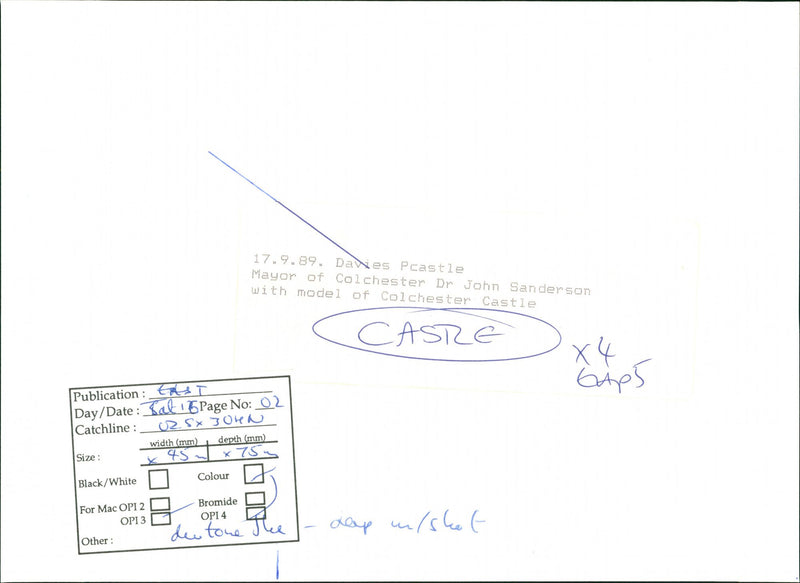 17.9.89. Davies Pcastle
Mayor of Colchester Dr John Sanderson
with model of Colchester Castle
CASTLE
x 4
Publication : EAST
Day/Date : Sat 16 Page No: 02
Catchline :
width (mm) depth (mm)
Size : x 45 x 75
Black/White Colour
For Mac OPI 2 Bromide
OPI 3 OPI 4
Other :